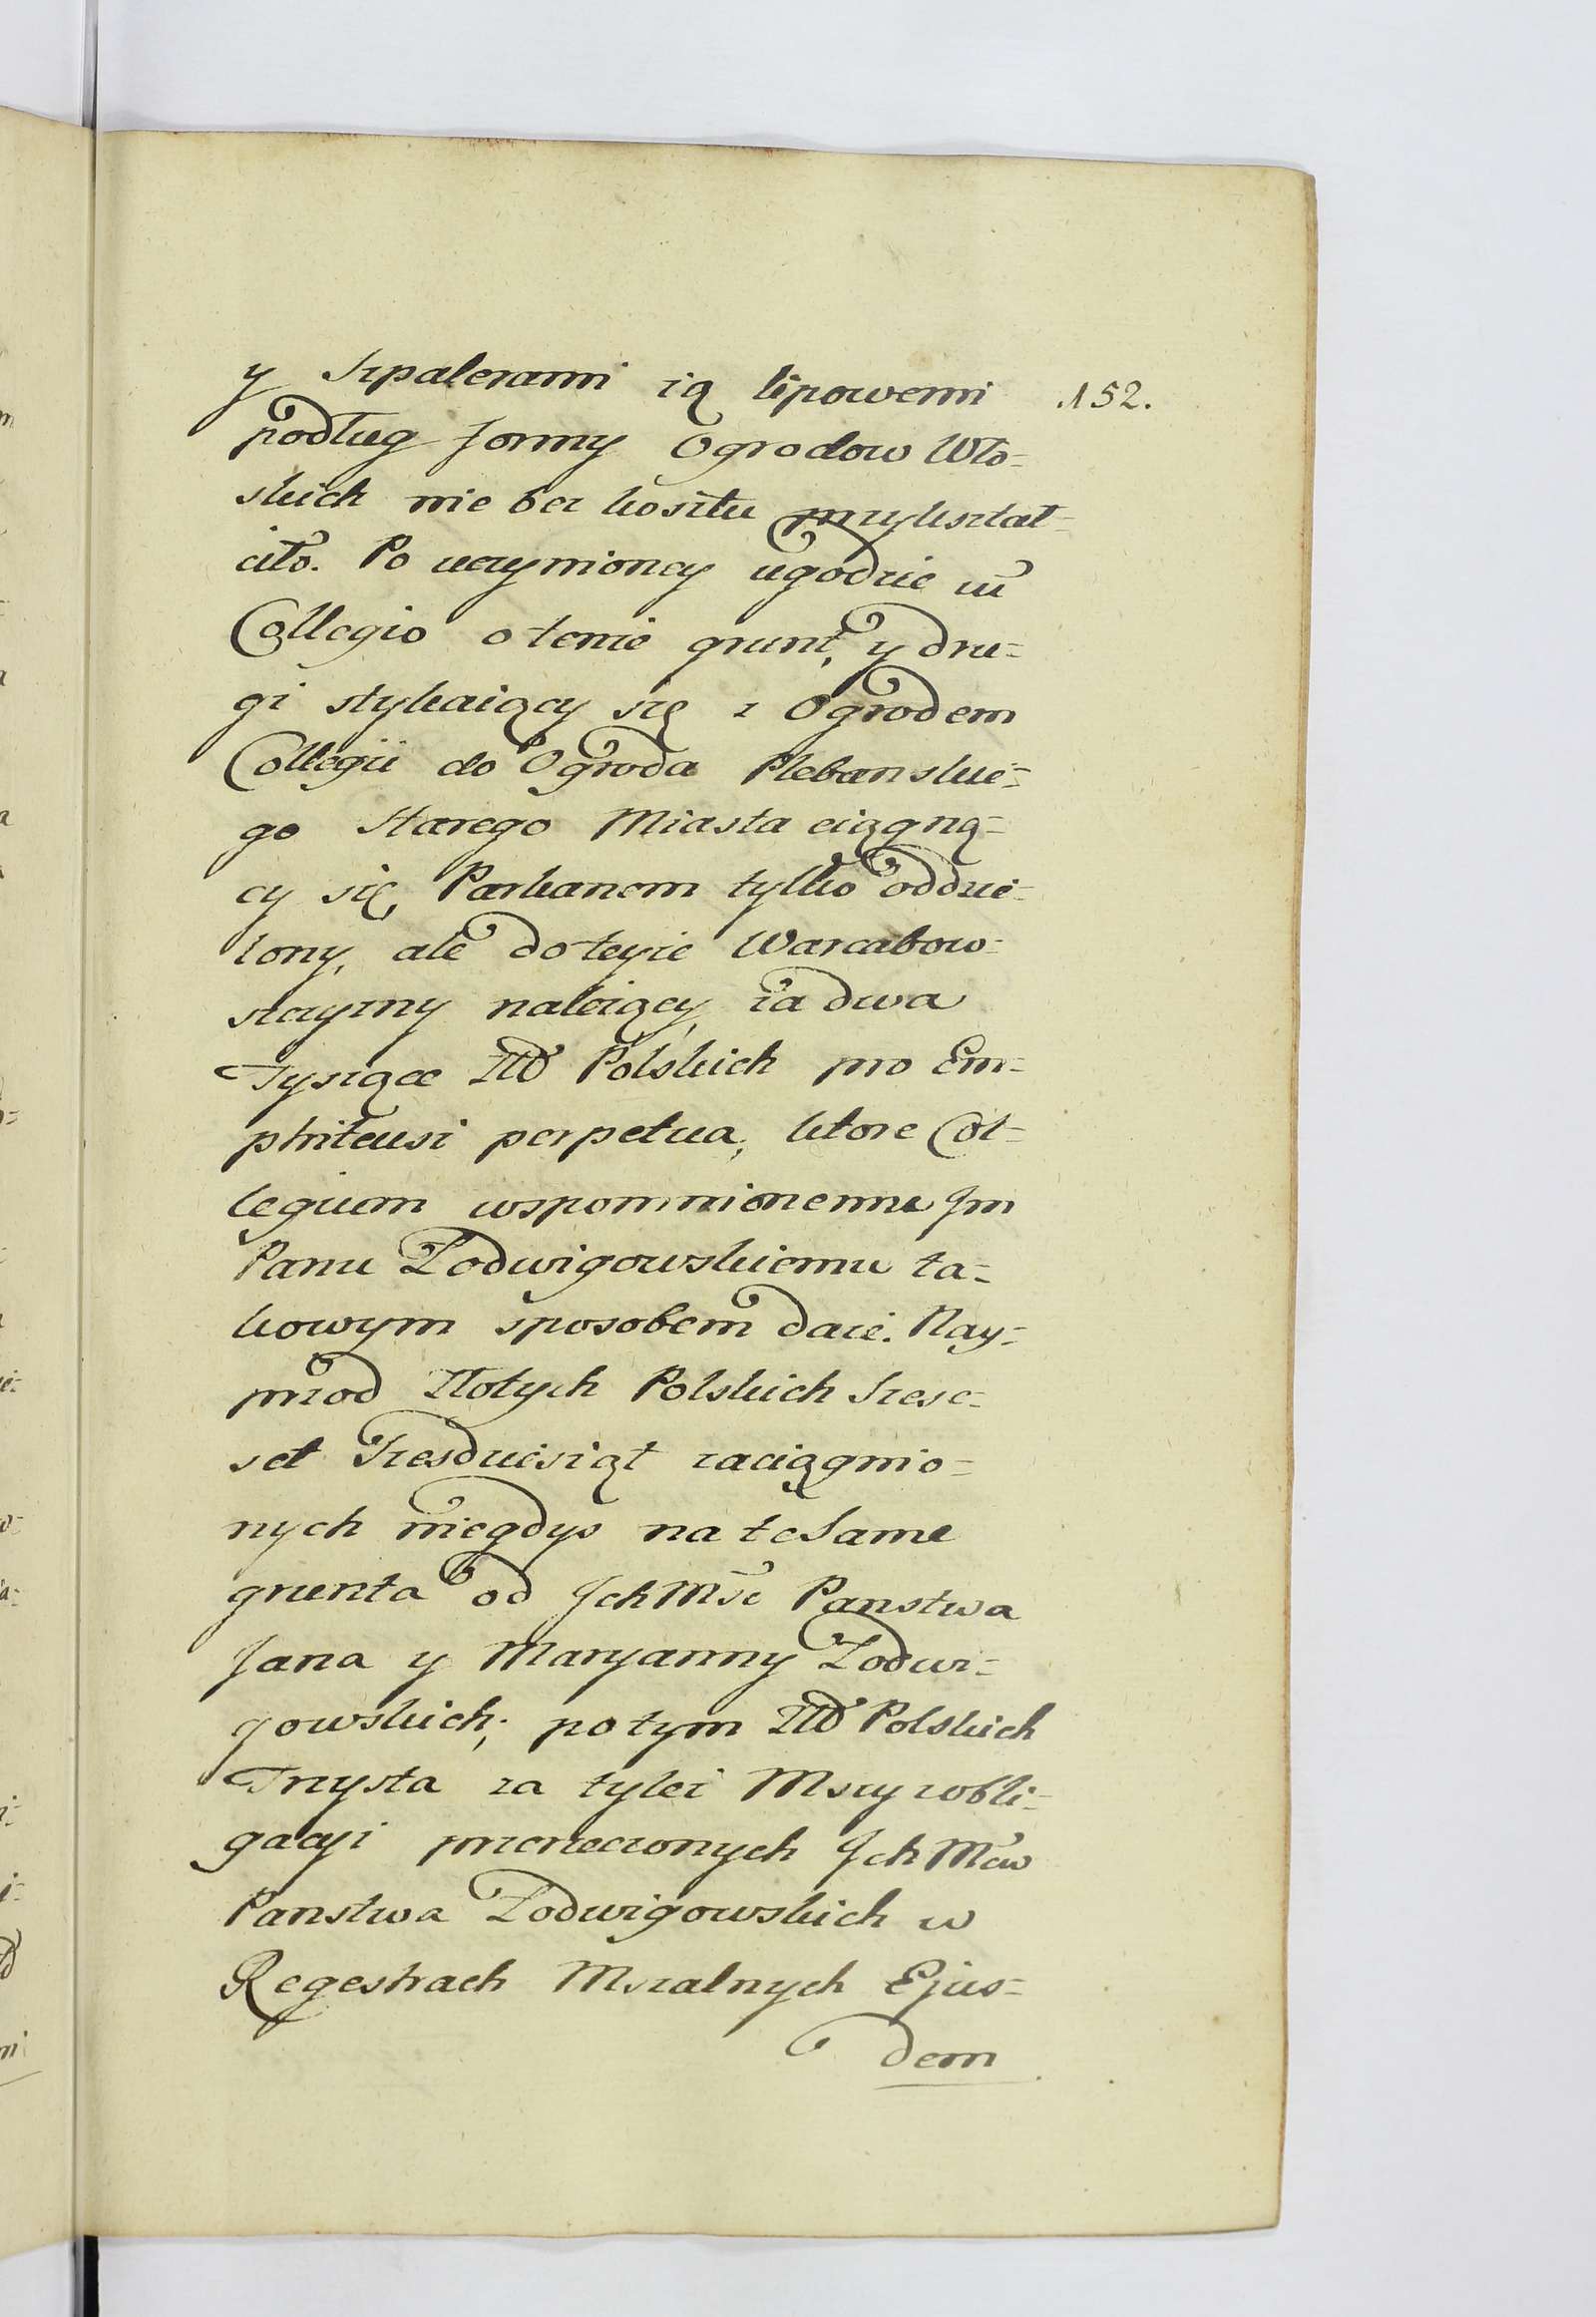 y Szpalerami ią lipowemi
152.
podług formy Ogrodow Wło-
skich nie bez kosztu przykształ-
ciło. Po uczynioney ugodzie w
Collegio o tenże grunt, y dru-
gi stykaiący się z Ogrodem
Collegii do Ogroda Plebanskie-
go Starego Miasta ciągną-
cy się, Parkanem tylko oddzie-
lony, ale do teyże Warcabow-
szczyzny należący, za dwa
Tysiące Zł Polskich pro Em-
phiteusi perpetua, ktore Col-
legium wspomnionemu Jm
Panu Zodwigowskiemu ta-
kowym sposobem daie. Nay-
przod Złotych Polskich Szesc-
set Szesdziesiąt zaciągnio-
nych niegdys na te Same
grunta od Jch Msc Panstwa
Jana y Maryanny Zodwi-
gowskich; potym Zł Polskich
Trzysta za tyleż Mszy zobli-
gacyi przerzeczonych Jch Mcw
Panstwa Zodwigowskich w
Regestrach Mszalnych Ejus-
dem